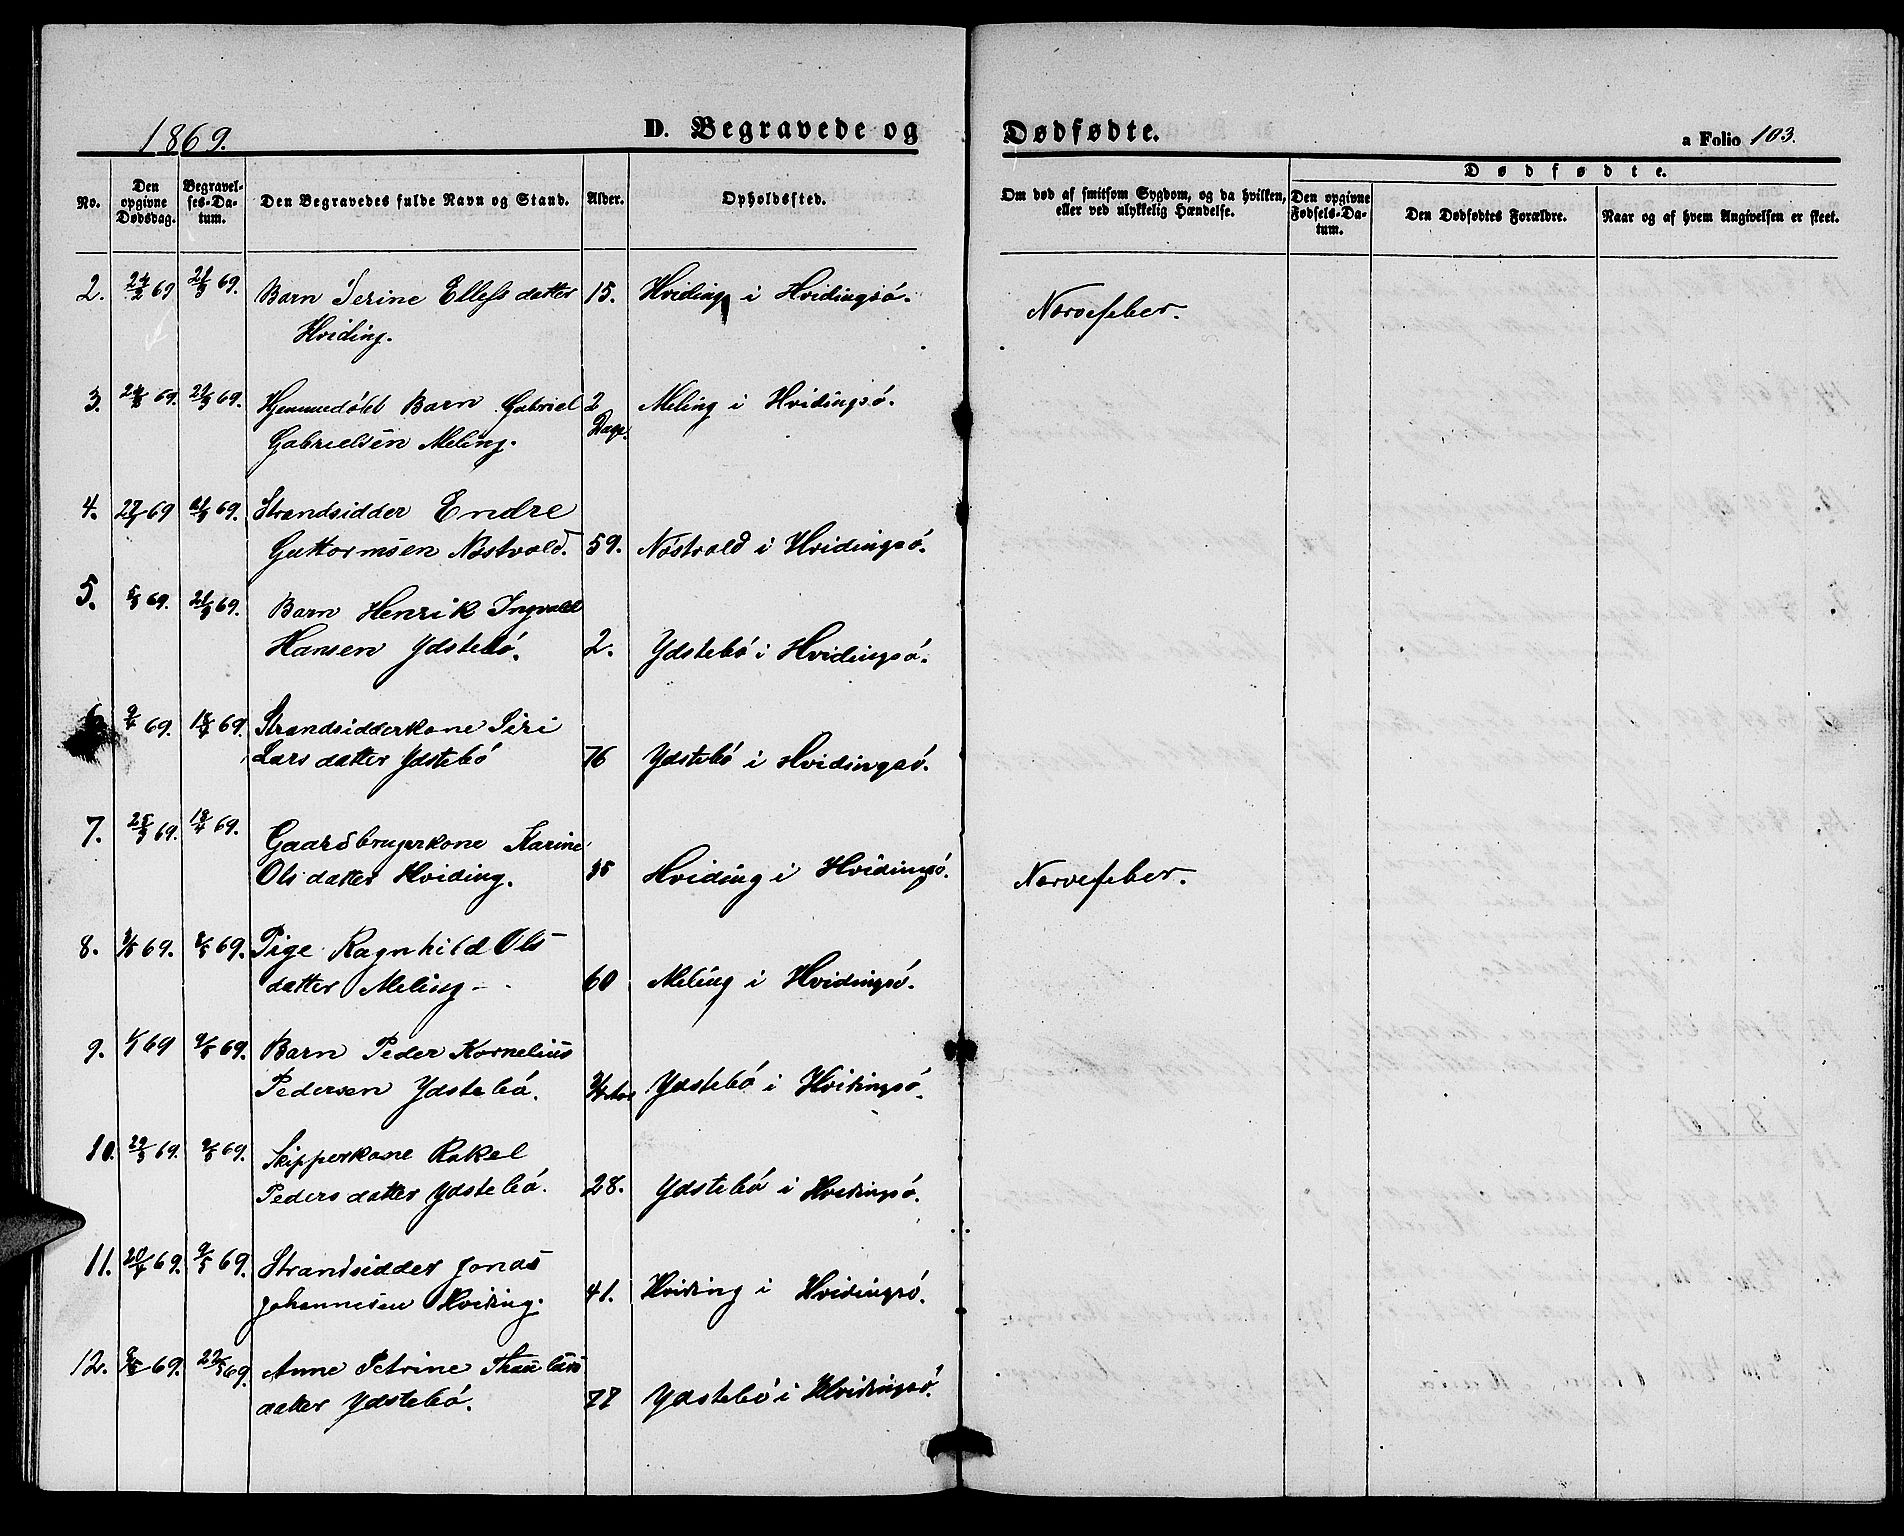 1869.
D. Begravede og Dødfødte.
a Folio 103.
No.
Den opgivne Dødsdag.
Begravelses-Datum.
Den Begravedes fulde Navn og Stand.
Alder.
Opholdssted.
Om død af smitsom Sygdom, og da hvilken, eller ved ulykkelig Hændelse.
Dødfødte.
Den opgivne Fødsels-Datum.
Den Dødfødtes Forældre.
Naar og af hvem Angivelsen er skeet.
2. 24/2 69 21/3 69. Barn Serine Ellefsdatter 15. Hviding i Hvidingsö. Nervefeber.
Hviding.
3. 69. 21/3 69. Hjemmedöbt Barn Gabriel 2 Meling i Hvidingsö.
Gabrielsen Meling. Dage.
4. 69 21/3 69. Strandsidder Endre
Guttormsen Nöstvold. 59. Nöstvold i Hvidingsö.
5. 5/3 69. 21/3 69. Barn Henrik Ingvald
Hansen Ydstebö. 2. Ydstebö i Hvidingsö.
6 9/4 69. 18/4 69. Strandsidderkone Siri
Larsdatter Ydstebö 76 Ydstebö i Hvidingsö.
7. 25/3 69. 18/4 69. Gaardbrugerkone Karine
Olsdatter Hviding. 35 Hviding i Hvidingsö. Nervefeber.
8. 69. 69. Pige Ragnhild Ols
datter Meling - 60 Meling i Hvidingsö.
9. 69 69. Barn Peder Kornelius
Pedersen Ydstebö. Ydstebö i Hvidingsö.
10. 29/3 69. 9/5 69. Skipperkone Rakel
Pedersdatter Ydstebö. 28. Ydstebö i Hvidingsö.
11. 20/4 69. 9/5 69. Strandsidder Jonas
Johannesen Hviding. 41. Hviding i Hvidingsö.
12. 69. 22/5 69. Anne Petrine
datter Ydstebö. 77 Ydstebö i Hvidingsö.